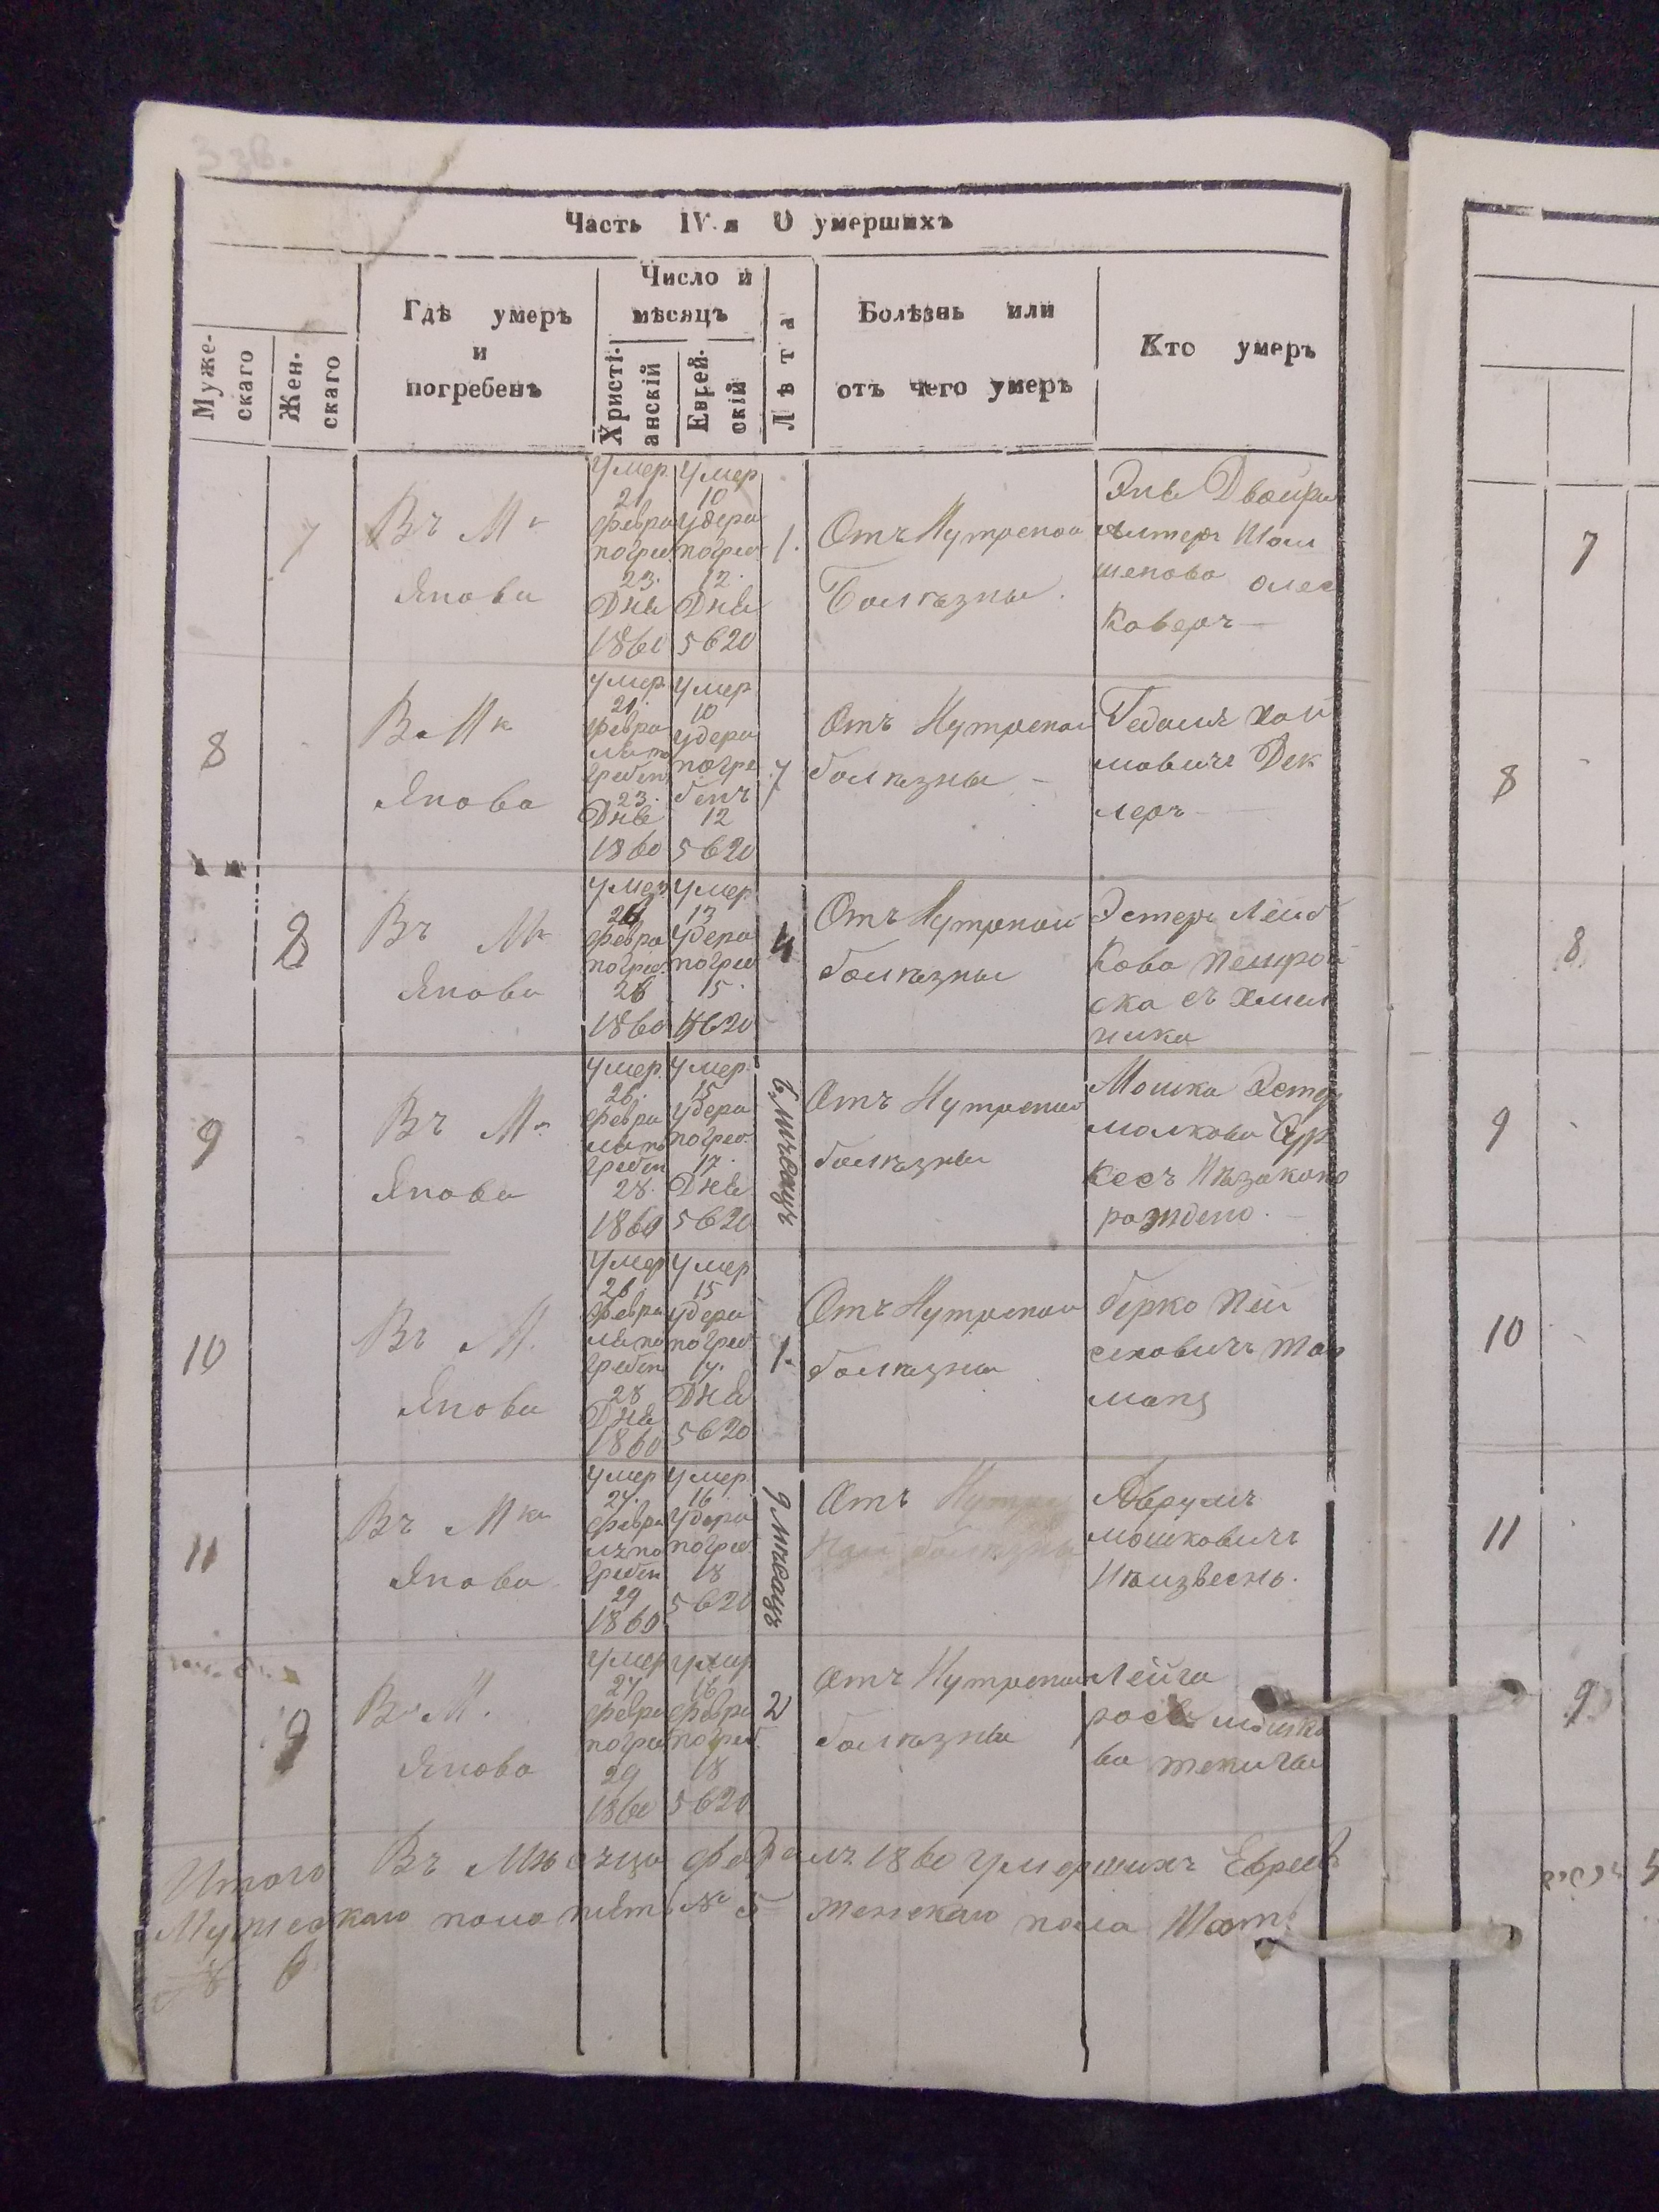 3 зв.
Часть IV я О умершихъ
Муже-
скаго
Жен-
скаго
Гдѣ умеръ
и
погребенъ
Число и
мѣсяцъ
Христі-
анскій
Еврей-
скій
Лѣта
Болѣзнь или
отъ чего умеръ
Кто умеръ
7
Въ Мк
Янова
умер.
21
февра
погреб.
23.
Дня
1860
умер
10
удера
погреб
12.
Дня
5620
1.
Отъ Нутреной
Болѣзны.
Двойра
Алтеръ
Коверъ
7
8
Въ Мк
Янова
умер.
21.
февра
ля по
гребен
23.
Дня
1860
умер
10
удера
погре
бенъ
12
5620
7
Отъ Нутреной
болѣзны
Гедаля Хай
мовичъ Дек
леръ
8
8
Въ Мк
Янова
умер
26
февра
погреб.
28
1860
умер.
13
удера
погреб
15.
5620
4
Отъ Нутреной
болѣзны
Эстеръ Лейб
кова
ска съ Хмел
ника
8
9
Въ Мк
Янова
умер.
26.
февра
ля по
гребен
28.
1860
умер.
15
удера
погреб.
17.
Дня
5620
6 мѣсяцъ
Отъ Нутреной
болѣзны
Мошка Эстер
малкова
кесъ Нѣзаконо
рождено.
9
10
Въ М.
Янова
умер
26.
февра
ля по
гребен
28
Дня
1860
умер
15
удера
погреб
17.
Дня
5620
1.
Отъ Нутреной
болѣзны
берко Пей
сиховичъ
манъ
10
11
Въ Мк
Янова
умер
27.
февра
лъ по
гребен
29
1860
умер.
16
удера
погреб.
18
5620
9 мѣсяцъ
Отъ Нутре
ной болѣзны
Аврумъ
мошковичъ
Нѣизвесно.
11
9
Въ М.
Янова
умер
27
февра
погреб
29
1860
умер
16
февра
погреб.
18
5620
2
Отъ Нутреной
болѣзны
Лейга
рося мошко
ва
9
Итого Въ Мѣсяцы февралъ 1860 умершихъ Еврееѣ
Мужескаго пола пять № 5 женскаго пола Шост
№ 6